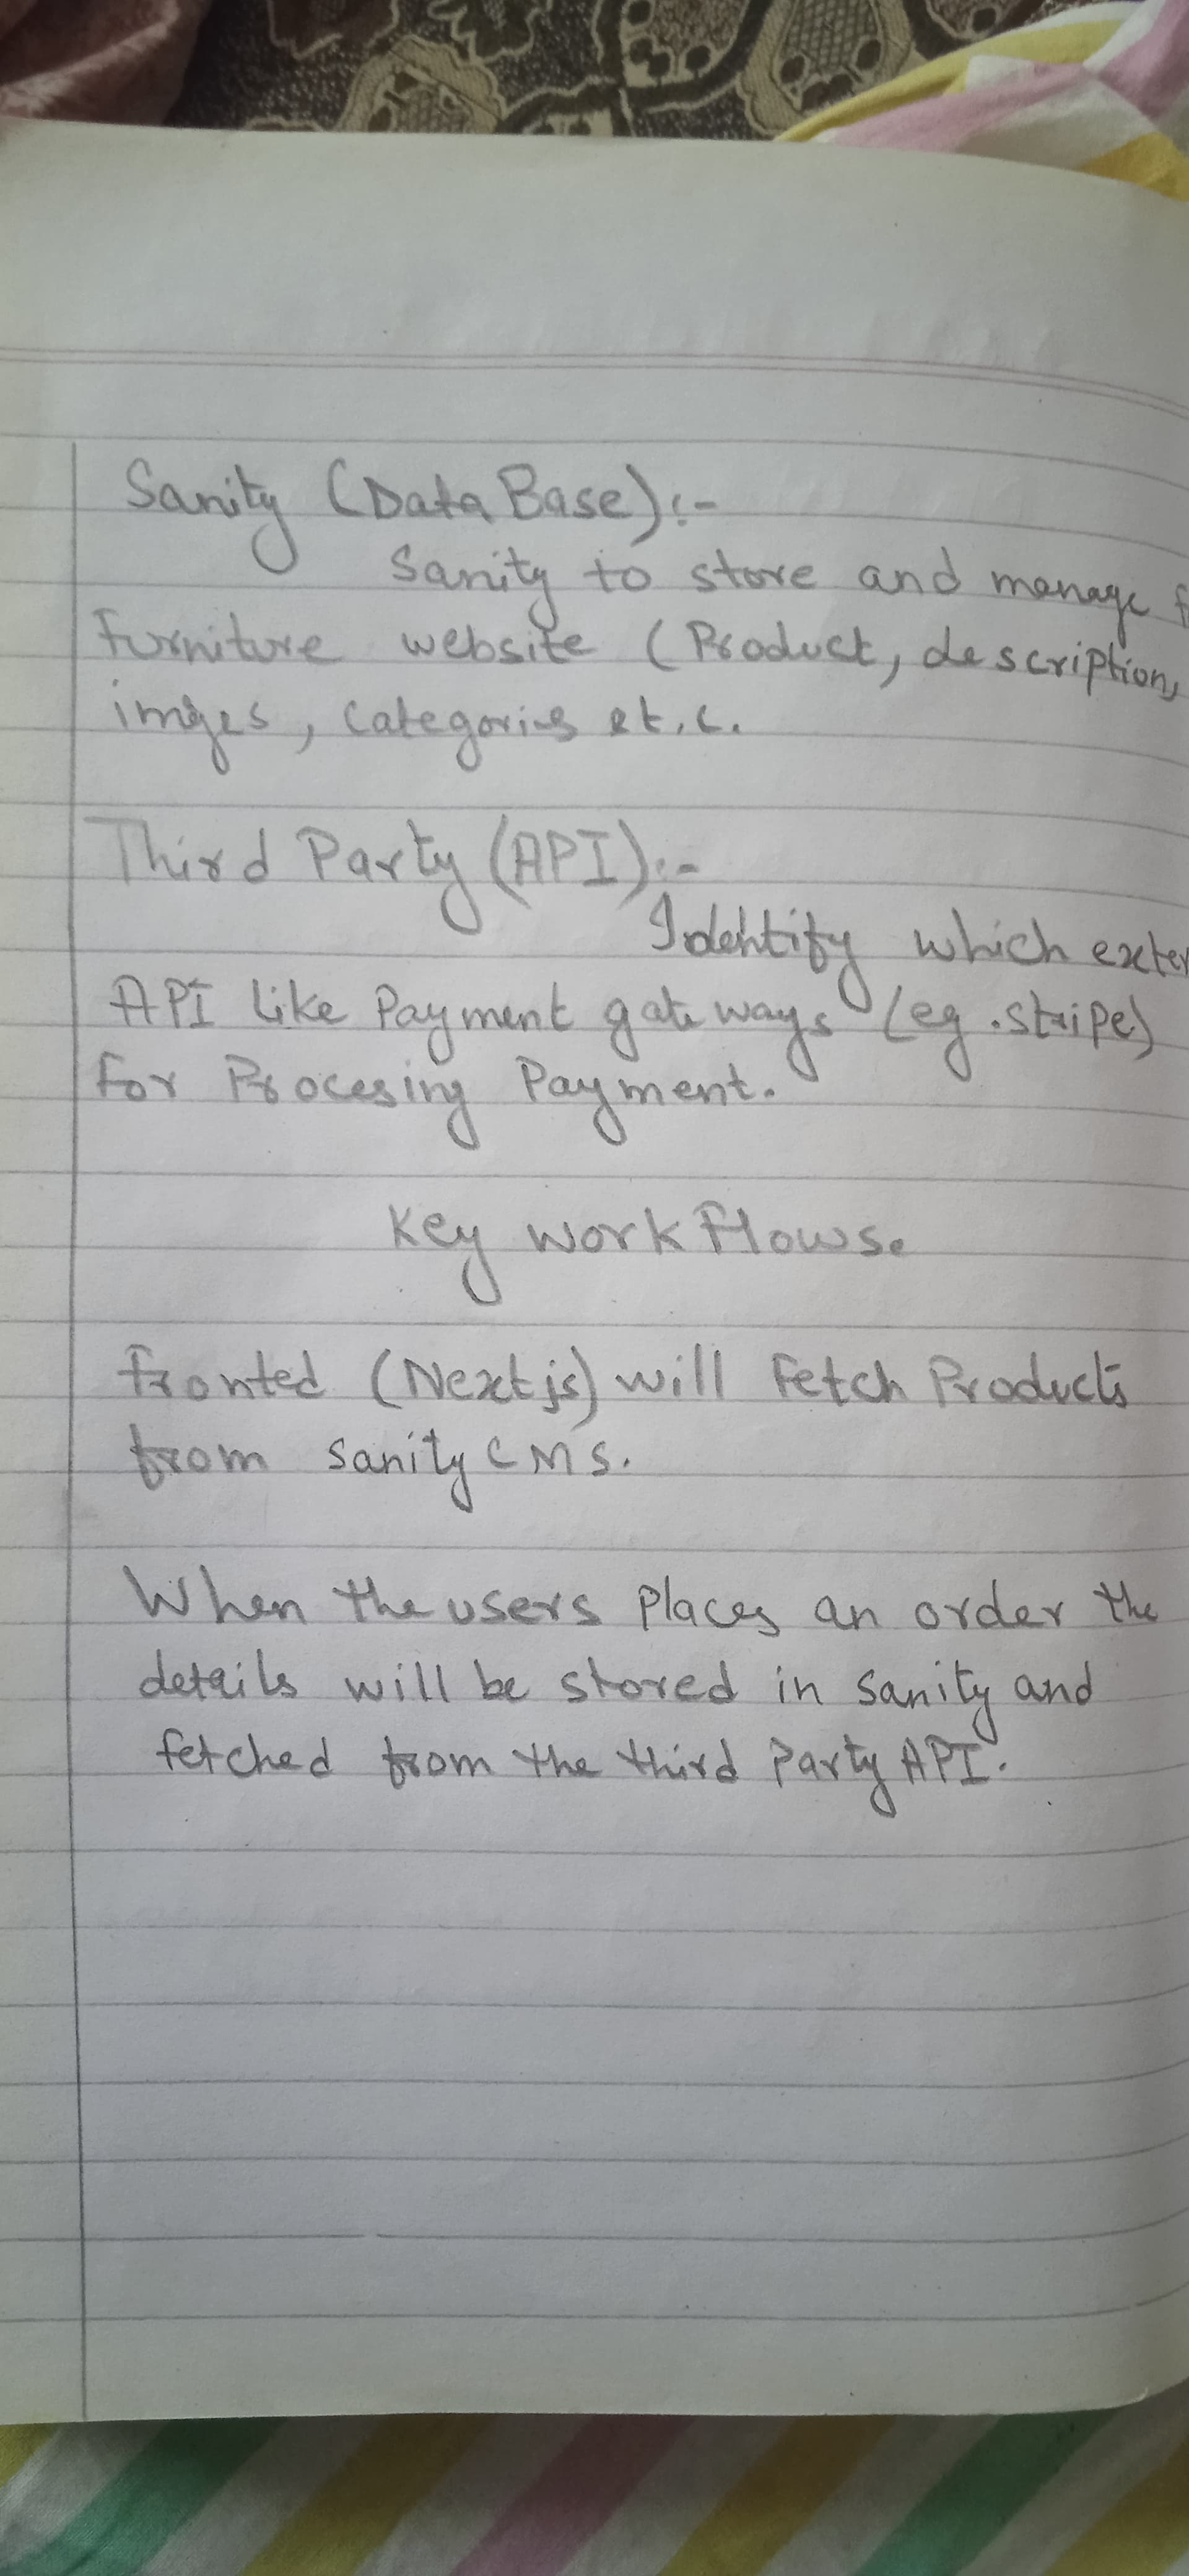 Sanity (Data Base):-
Sanity to store and manage
Furniture website (Product, description,
imges, Categories et.c.
Third Party (API):-
Identify which exter
API like Payment gateways (eg. stripe)
For Procesing Payment.
Key work Flows.
Fronted (Nextjs) will Fetch Products
from sanity CMS.
When the users Places an order the
details will be stored in sanity and
fetched from the third Party API.